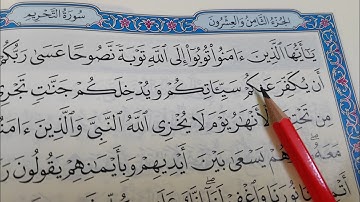 الجزء الثامن والعشرون
سورة التحريم
يَٰٓأَيُّهَا ٱلَّذِينَ ءَامَنُوا۟ تُوبُوٓا۟ إِلَى ٱللَّهِ تَوْبَةً نَّصُوحًا عَسَىٰ رَبُّكُمْ
أَن يُكَفِّرَ عَنكُمْ سَيِّـَٔاتِكُمْ وَيُدْخِلَكُمْ جَنَّٰتٍ تَجْرِى
مِن تَحْتِهَا ٱلْأَنْهَٰرُ يَوْمَ لَا يُخْزِى ٱللَّهُ ٱلنَّبِىَّ وَٱلَّذِينَ ءَامَنُوا۟
مَعَهُۥ يَسْعَىٰ بَيْنَ أَيْدِيهِمْ وَبِأَيْمَٰنِهِمْ يَقُولُونَ
نُورَنَا وَٱغْفِرْ لَنَآ